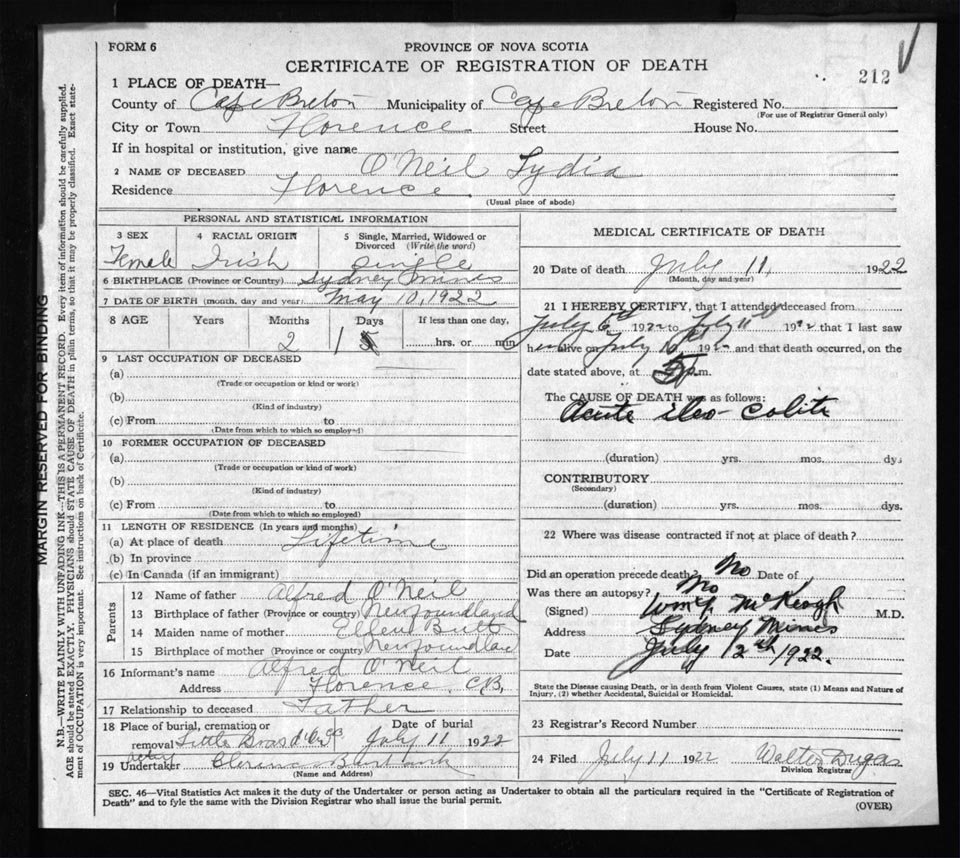 FORM 6
PROVINCE OF NOVA SCOTIA
CERTIFICATE OF REGISTRATION OF DEATH
212
1 PLACE OF DEATH—
County of Cape Breton Municipality of Cape Breton Registered No.
(For use of Registrar General only)
City or Town Florence Street House No.
If in hospital or institution, give name
2 NAME OF DECEASED O'Neil Lydia
Residence Florence
(Usual place of abode)
PERSONAL AND STATISTICAL INFORMATION
3 SEX 4 RACIAL ORIGIN 5 Single, Married, Widowed or Divorced (Write the word)
Female Irish Single
6 BIRTHPLACE (Province or Country) Sydney Mines
7 DATE OF BIRTH (month, day and year) May 10, 1922
8 AGE Years Months Days If less than one day,
2 1 hrs. or min.
9 LAST OCCUPATION OF DECEASED
(a)
(Trade or occupation or kind or work)
(b)
(Kind of industry)
(c) From to
(Date from which to which so employed)
10 FORMER OCCUPATION OF DECEASED
(a)
(Trade or occupation or kind of work)
(b)
(Kind of industry)
(c) From to
(Date from which to which so employed)
11 LENGTH OF RESIDENCE (In years and months)
(a) At place of death Lifetime
(b) In province
(c) In Canada (if an immigrant)
Parents
12 Name of father Alfred O'Neil
13 Birthplace of father (Province or country) Newfoundland
14 Maiden name of mother Butt
15 Birthplace of mother (Province or country) Newfoundland
16 Informant's name Alfred O'Neil
Address Florence C.B.
17 Relationship to deceased Father
18 Place of burial, cremation or Date of burial
removal Little Bras d'Or July 11 1922
19 Undertaker Clarence
(Name and Address)
MEDICAL CERTIFICATE OF DEATH
20 Date of death July 11, 1922
(Month, day and year)
21 I HEREBY CERTIFY, that I attended deceased from
July 6th 1922 to July 11th 1922 that I last saw
h er alive on July 10 1922 and that death occurred, on the
date stated above, at 5 p.m.
The CAUSE OF DEATH was as follows:
Acute ileo-colitis
(duration) yrs. mos. dys
CONTRIBUTORY
(Secondary)
(duration) yrs. mos. dys.
22 Where was disease contracted if not at place of death?
Did an operation precede death? No Date of
Was there an autopsy? No
(Signed) McKeogh M.D.
Address Sydney Mines
Date July 12th 1922.
State the Disease causing Death, or in death from Violent Causes, state (1) Means and Nature of
Injury, (2) whether Accidental, Suicidal or Homicidal.
23 Registrar's Record Number
24 Filed July 11 1922 Walter Dugas
Division Registrar
SEC. 46—Vital Statistics Act makes it the duty of the Undertaker or person acting as Undertaker to obtain all the particulars required in the "Certificate of Registration of
Death" and to fyle the same with the Division Registrar who shall issue the burial permit.
(OVER)
MARGIN RESERVED FOR BINDING
N.B.—WRITE PLAINLY WITH UNFADING INK—THIS IS A PERMANENT RECORD. Every item of information should be carefully supplied.
AGE should be stated EXACTLY. PHYSICIANS should STATE CAUSE OF DEATH in plain terms, so that it may be properly classified. Exact state-
ment of OCCUPATION is very important. See instructions on back of Certificate.